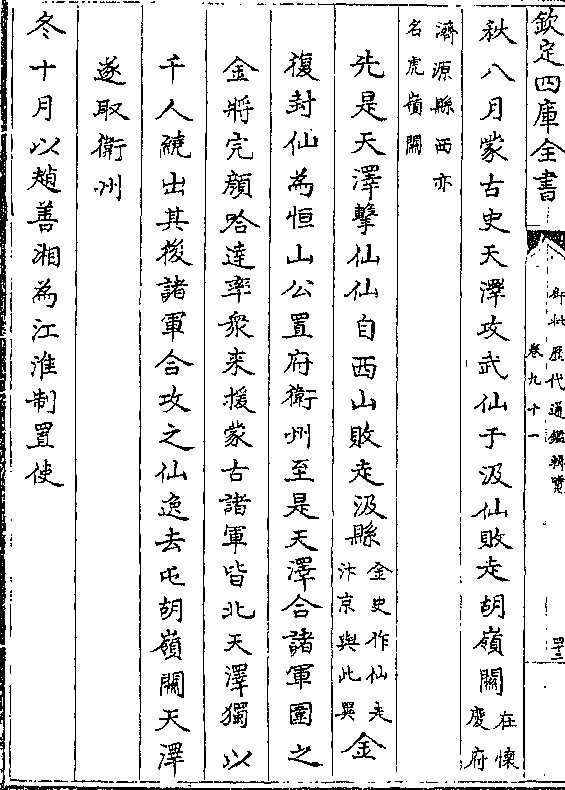 欽定四庫全書
御批歷代通鑑輯覽
卷九十一
秋八月蒙古史天澤攻武仙于汲仙敗走胡嶺關在懷慶府
濟源縣西亦名虎嶺關
先是天澤擊仙仙自西山敗走汲縣金史作仙走汴京與此異金
復封仙為恒山公置府衛州至是天澤合諸軍圍之
金將完顔哈達率衆來援蒙古諸軍皆北天澤獨以
千人繞出其後諸軍合攻之仙逸去屯胡嶺關天澤
遂取衛州
冬十月以趙善湘為江淮制置使